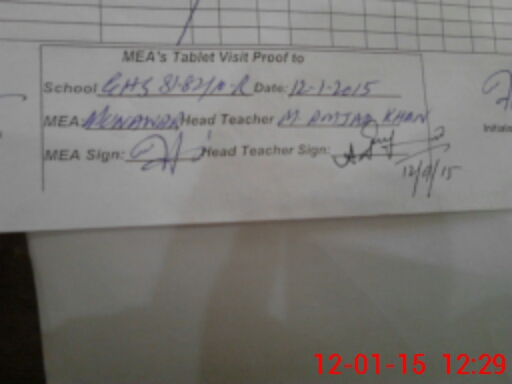 MEA's Tablet Visit Proof to
School GHS 81-82/10-R Date: 12-1-2015
MEA MUNAWAR Head Teacher M AMJAD KHAN
MEA Sign: Head Teacher Sign:
Initials
12-01-15 12:29